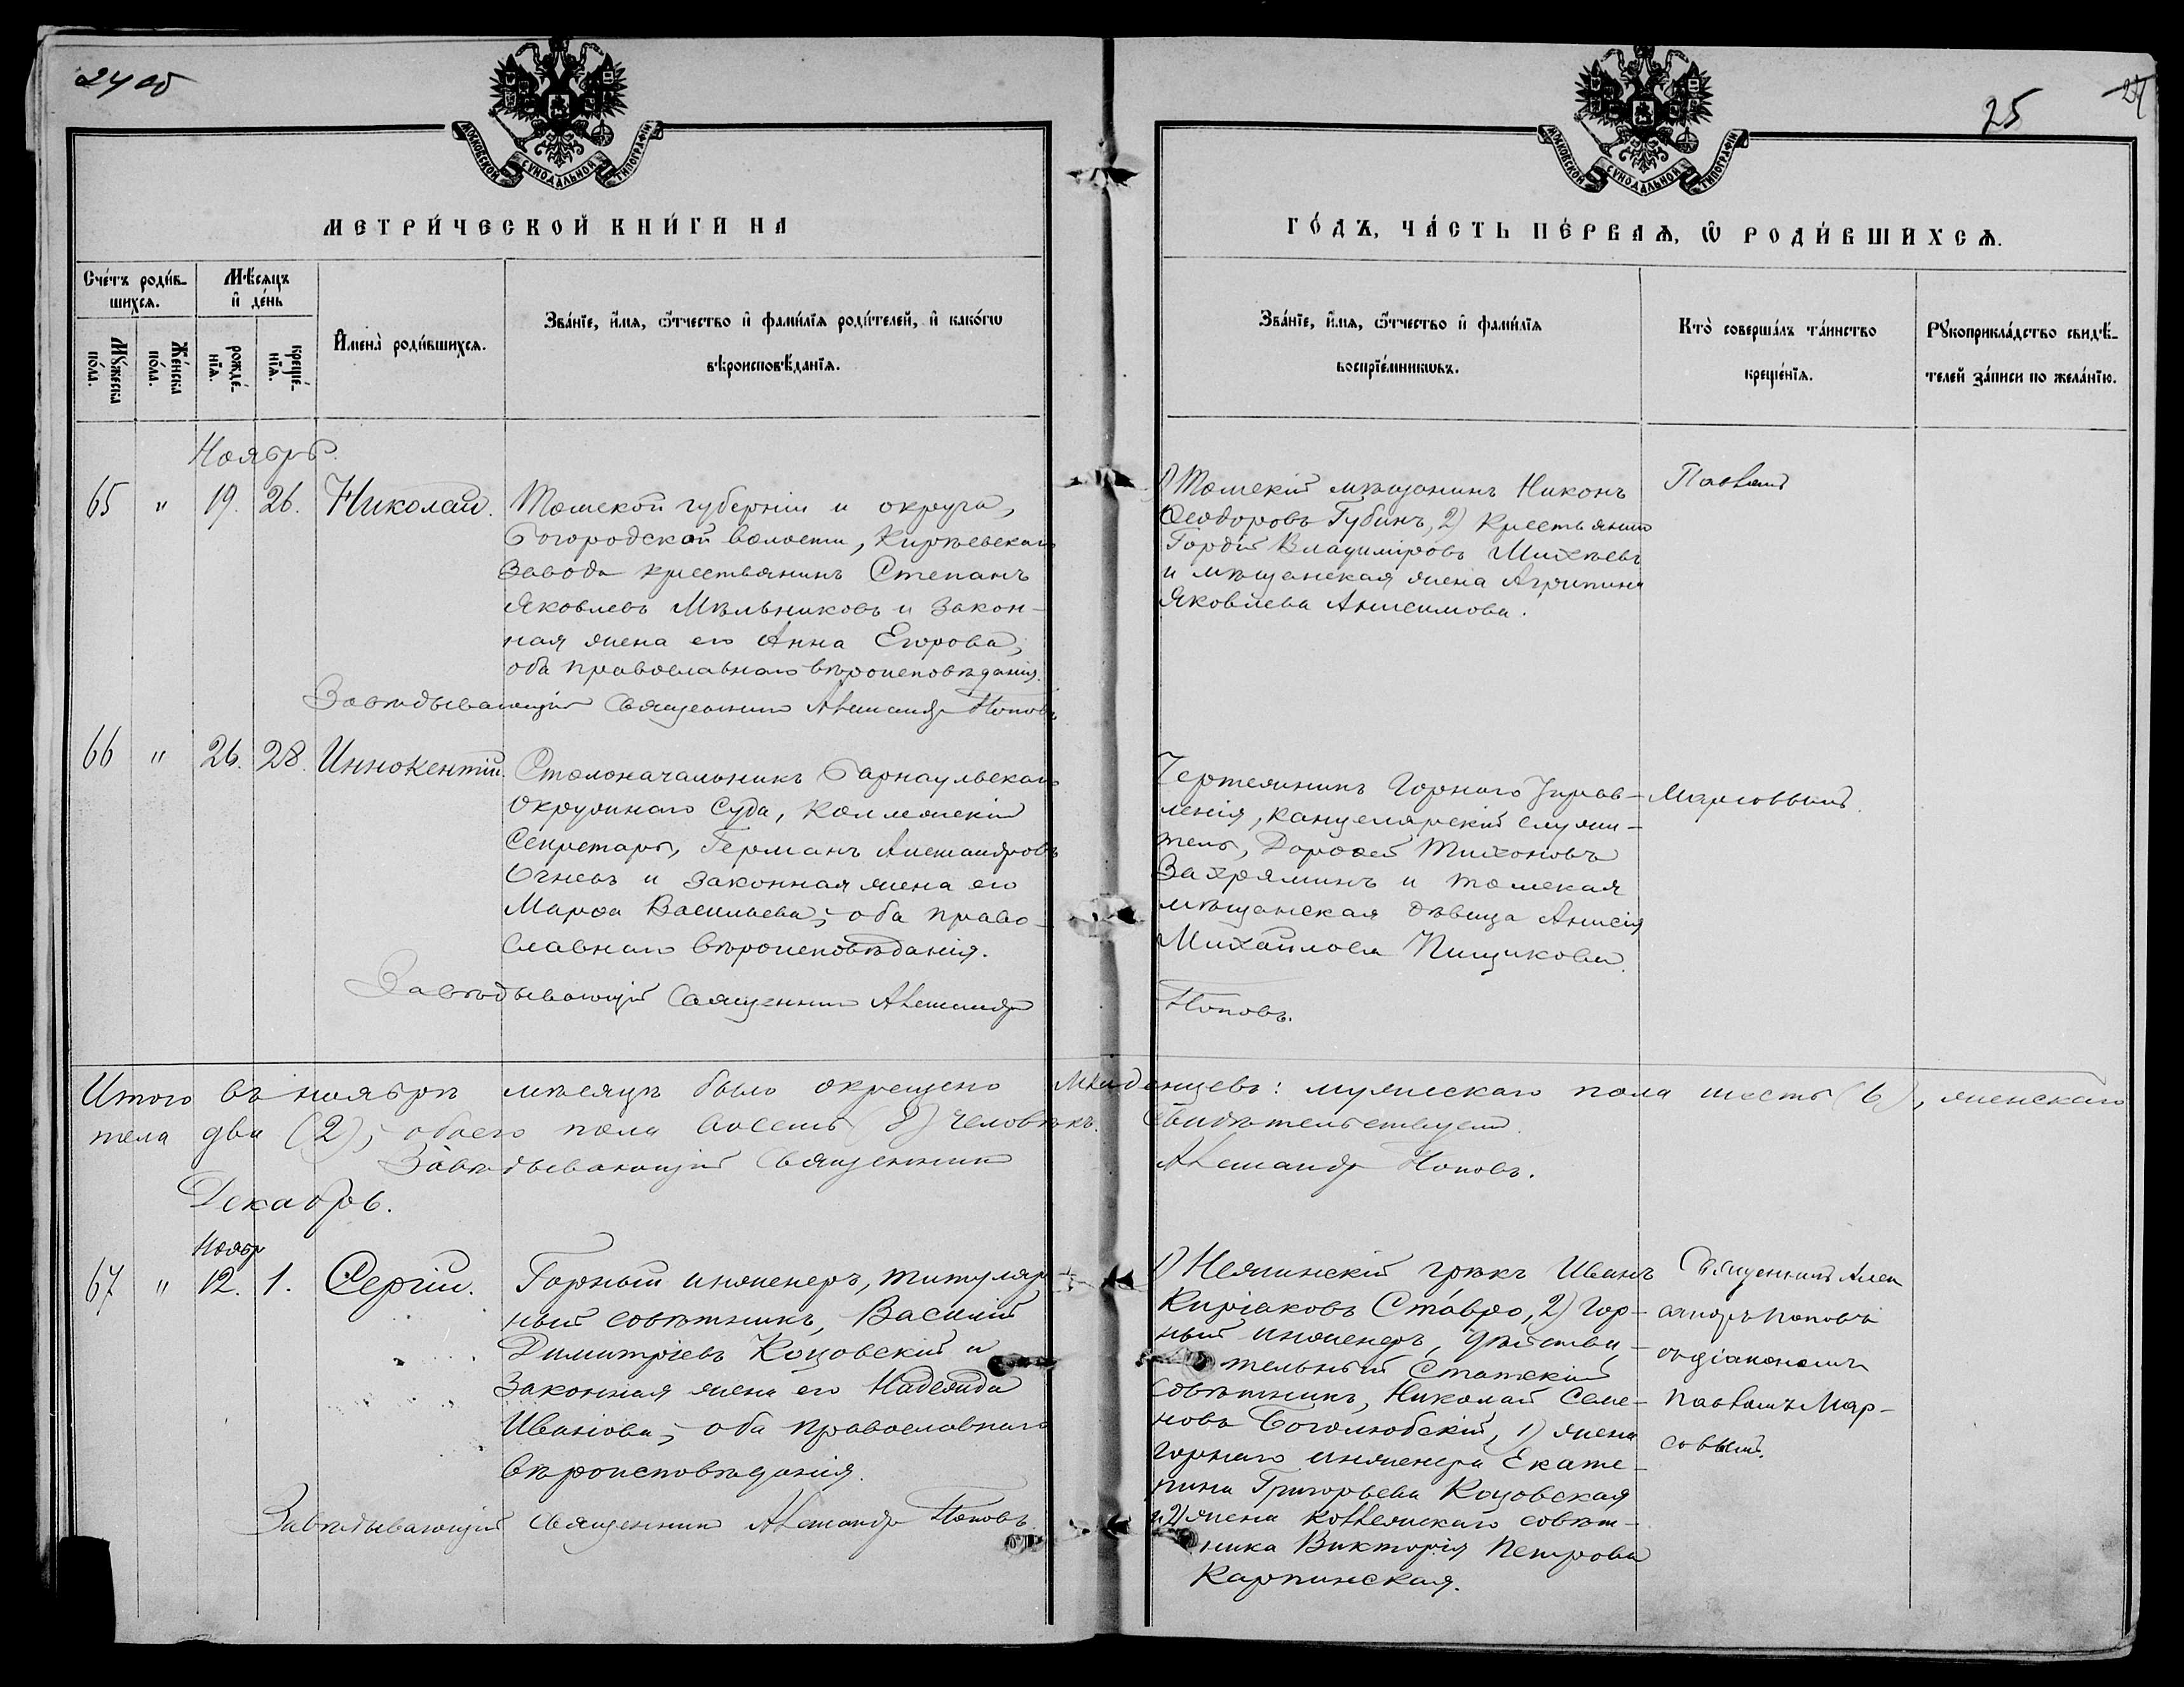 24 об
25
24
МОСКОВСКОЙ СѴНОДАЛЬНОЙ ТИПОГРАФІИ
МОСКОВСКОЙ СѴНОДАЛЬНОЙ ТИПОГРАФІИ
МЕТРИ́ЧЕСКОЙ КНИ́ГИ НА
ГО́ДЪ, ЧА́СТЬ ПЕ́РВАѦ, Ѡ РОДИ́ВШИХСѦ.
Сче́тъ роди́в-
шихсѧ.
Мꙋ́жеска
по́ла.
Же́нска
по́ла.
Мѣ́сѧцъ
и҆ де́нь
рожде́-
нїѧ.
креще́-
нїѧ.
И҆мена̀ роди́вшихсѧ.
Зва́нїе, и҆́мѧ, ѻ҆́тчество и҆ фами́лїѧ роди́телей, и҆ како́гѡ
вѣроисповѣ́данїѧ.
Зва́нїе, и҆́мѧ, ѻ҆́тчество и҆ фами́лїѧ
воспрїе́мникѡвъ.
Кто̀ соверша́лъ та́инство
креще́нїѧ.
Рꙋкоприкла́дство свидѣ́-
телей за́писи по жела́нїю.
Ноябрь.
65 " 19. 26. Николай.
Томской губерніи и округа,
Богородской волости, Кирѣевскаго
завода крестьянинъ Степанъ
Яковлевъ Мѣльниковъ и закон-
ная жена его Анна Егорова,
оба православнаго вѣроисповѣданія.
Завѣдывающій Священникъ Александръ Поповъ
1) Томскій мѣщанинъ Никонъ
Ѳеодоровъ Губинъ, 2) Крестьянинъ
Гордій Владиміровъ Михѣевъ
и мѣщанская жена Агрипина
Яковлева Анисимова.
Павелъ
66 " 26. 28. Иннокентій.
Столоначальникъ Барнаульскаго
Окружнаго Суда, Коллежскій
Секретарь, Германъ Александровъ
Огневъ и законная жена его
Марѳа Васильева; оба право-
славнаго вѣроисповѣданія.
Завѣдывающій Священникъ Александръ
Поповъ.
Чертежникъ Горнаго Управ-
ленія, канцелярскій служи-
тель, Дороѳей Тихоновъ
Захряминъ и томская
мѣщанская дѣвица Анисія
Михайлова Пищикова.
Марсовымъ.
Итого въ ноябрѣ мѣсяцѣ было окрещено младенцевъ: мужескаго пола шесть (6), женскаго
пола два (2); обоего пола восемь (8) человѣкъ. Свидѣтельствуемъ.
Завѣдывающій Священникъ Александръ Поповъ.
Декабрь.
Ноябр
67 " 12. 1. Сергій.
Горный инженеръ, титуляр-
ный совѣтникъ, Василій
Димитріевъ Коцовскій и
законная жена его Надежда
Иванова; оба православнаго
вѣроисповѣданія.
Завѣдывающій Священникъ Александръ Поповъ.
1) Нежинскій грѣкъ Иванъ
Киріаковъ Ста́вро, 2) Гор-
ный инженеръ, дѣйстви-
тельный Статскій
совѣтникъ, Николай Семе-
новъ Боголюбскій, 1) жена
горнаго инженера Екате-
рина Григорьева Коцовская
и 2) жена коллежскаго совѣт-
ника Викторія Петрова
Карпинская.
Священникъ Алек
сандръ Поповъ
съ діакономъ
Павломъ Мар-
совымъ.